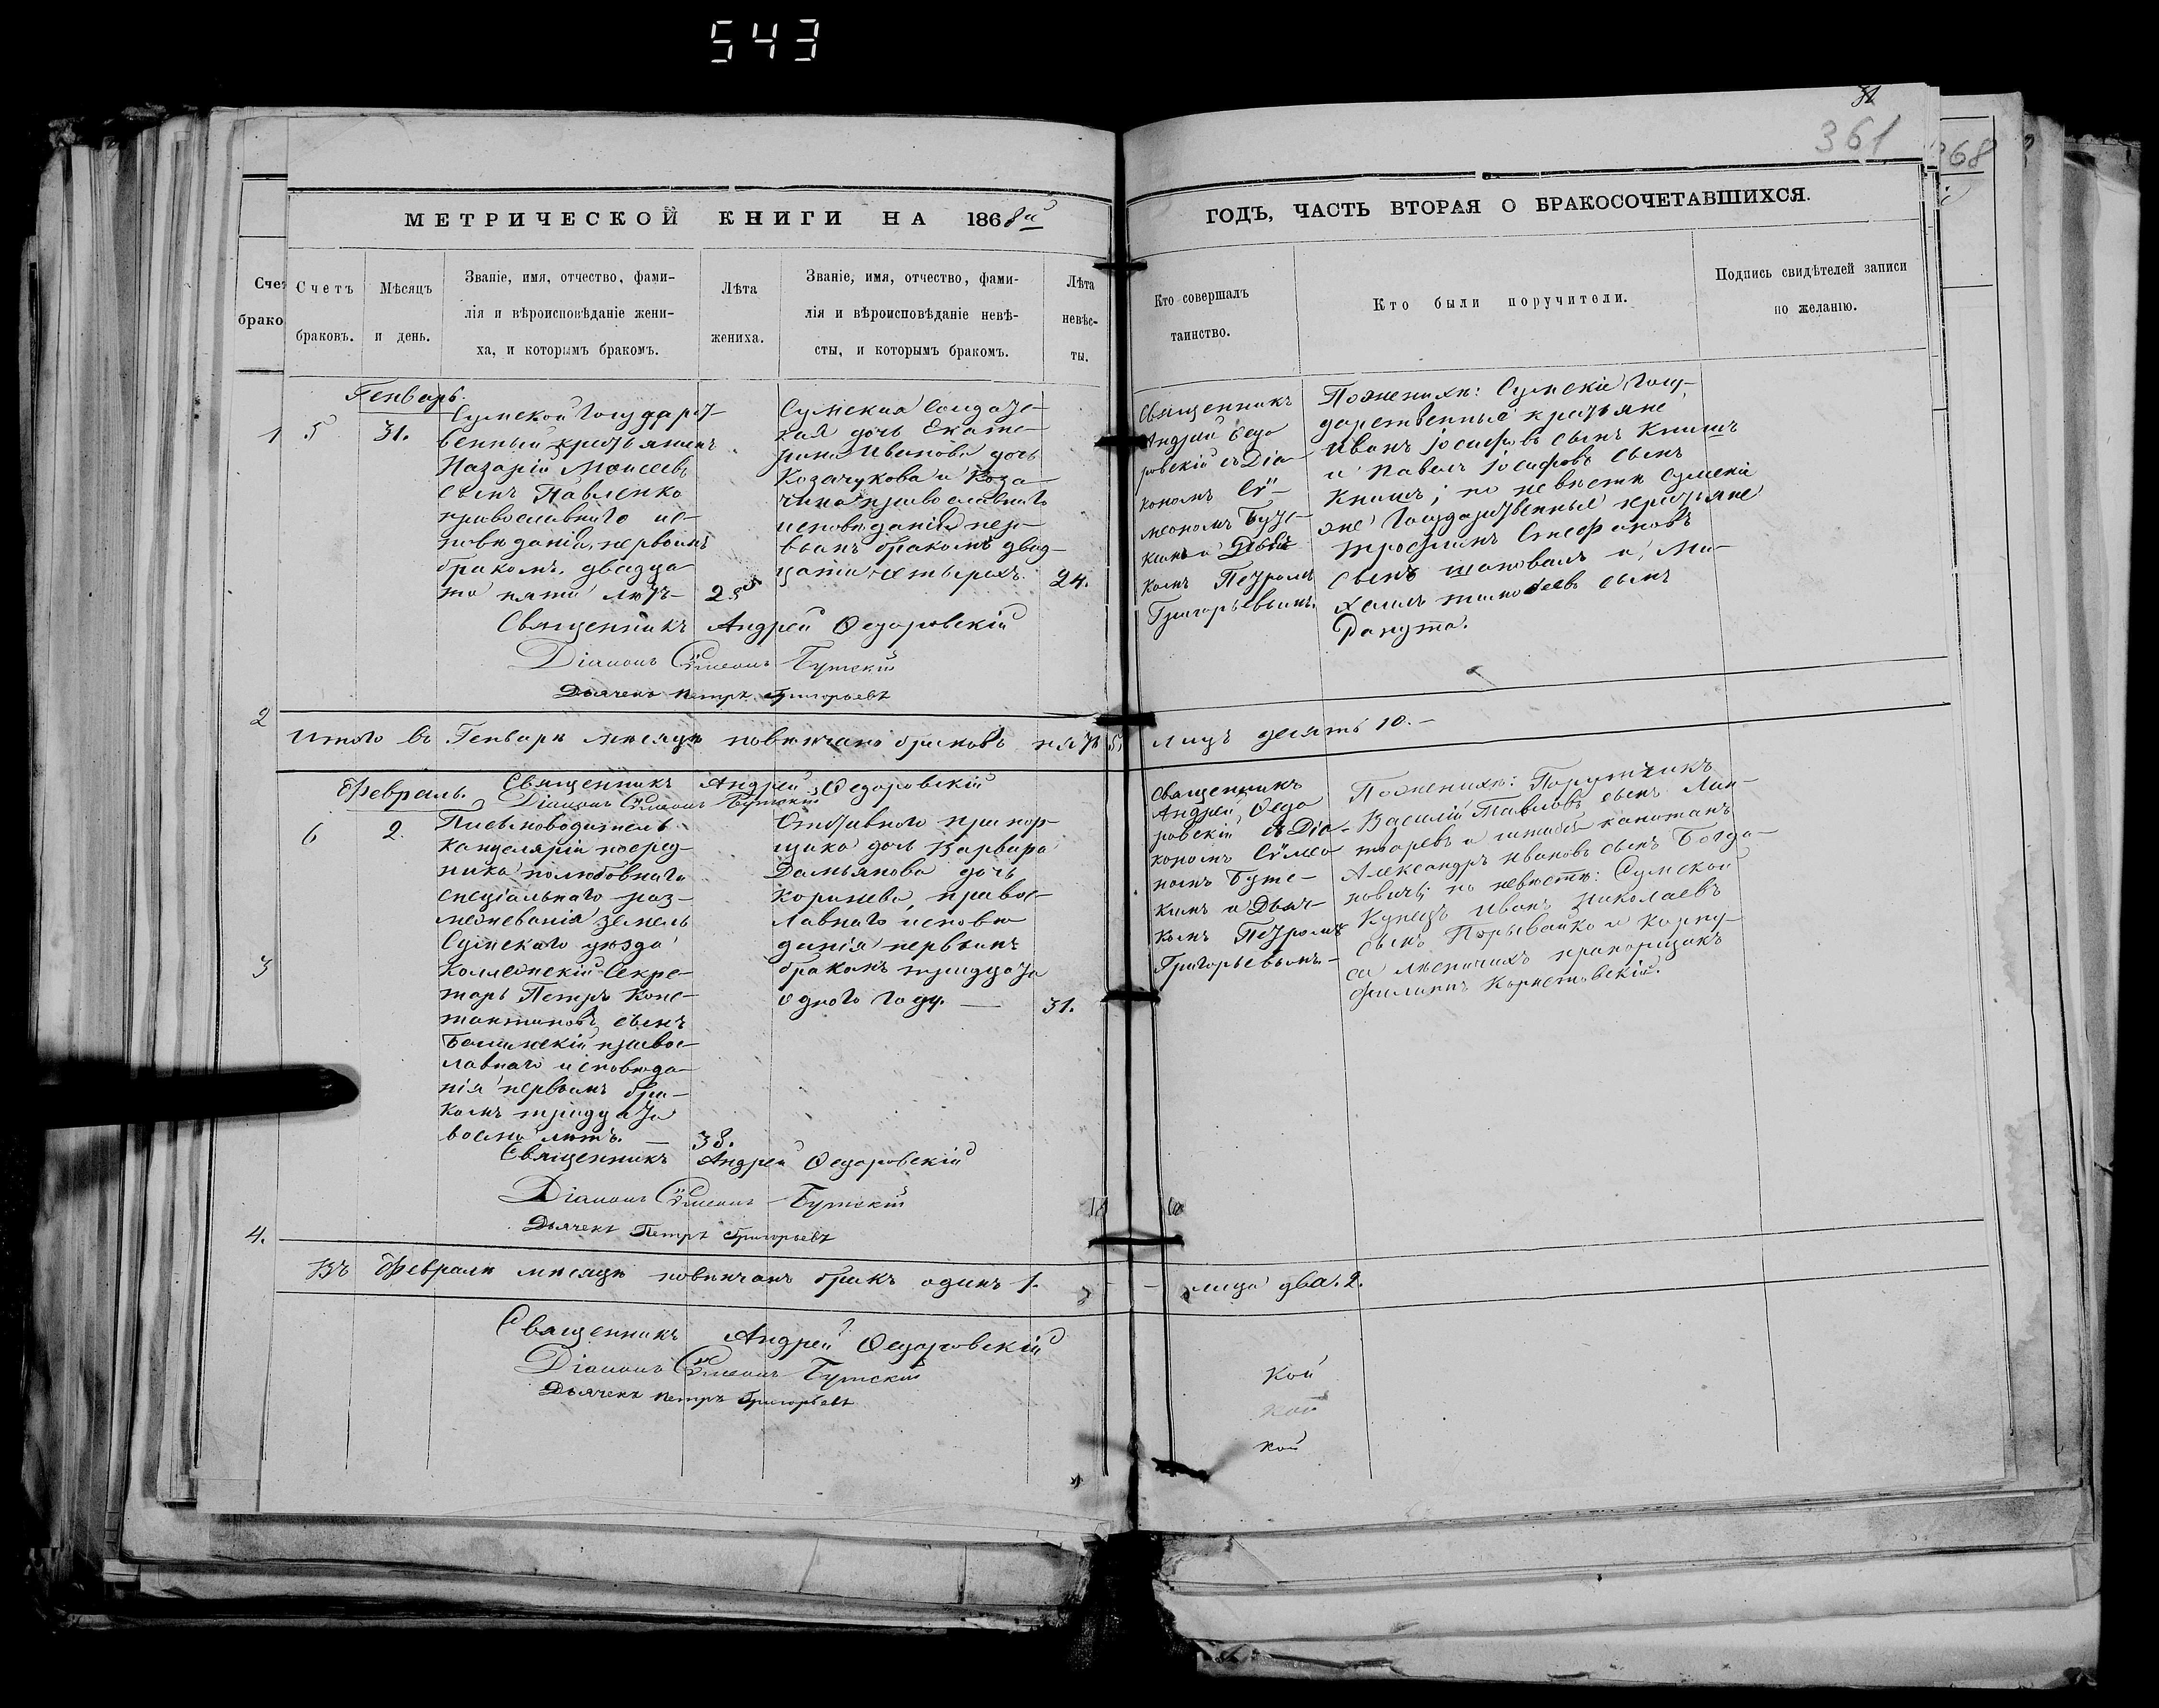 543
31
361
МЕТРИЧЕСКОЙ КНИГИ НА 1868й
ГОДЪ, ЧАСТЬ ВТОРАЯ О БРАКОСОЧЕТАВШИХСЯ.
Счетъ браковъ.
Мѣсяцъ и день.
Званіе, имя, отчество, фами-
лія и вѣроисповѣданіе жени-
ха, и которымъ бракомъ.
Лѣта жениха.
Званіе, имя, отчество, фами-
лія и вѣроисповѣданіе невѣ-
сты, и которымъ бракомъ.
Лѣта невѣс-
ты.
Кто совершалъ
таинство.
Кто были поручители.
Подпись свидѣтелей записи
по желанію.
Генварь.
5
31.
Сумской Государст-
венный крестьянинъ
Назарій Моисеевъ
сынъ Павленко
православнаго ис-
повѣданія, первымъ
бракомъ, двадца-
ти пяти лѣтъ
25
Сумская солдатс-
кая дочь Екате-
рина Иванова дочь
Козачукова и Коза-
чина православнаго
исповѣданія пер-
вымъ бракомъ двад-
цати четырехъ.
24.
Священникъ
Андрей Ѳедо
ровскій съ Діа-
кономъ Сѵ-
меономъ Бутс-
кимъ и Дьяч-
комъ Петромъ
Григорьевымъ.
По женихѣ: Сумскіе Госу-
дарственные крестьяне
Иванъ Іосифовъ сынъ Книшъ
и Павелъ Іосифовъ сынъ
Книшъ; по невѣстѣ Сумскіе
же Государственные крестьяне
Трофимъ Стефановъ
сынъ Шаповалъ и Ми-
хаилъ Тимофеевъ сынъ
Священникъ Андрей Ѳедоровскій
Діаконъ Сѵмеонъ Бутскій
Дьячекъ Петръ Григорьевъ
Итого въ Генварѣ мѣсяцѣ повѣнчано браковъ пять 5, лицъ десять 10.
Священникъ Андрей Ѳедоровскій
Діаконъ Сѵмеонъ Бутскій
Февраль.
6
2.
Письмоводитель
Канцеляріи посред-
ника полюбовнаго
спеціальнаго раз-
межеванія земель
Сумскаго уѣзда
Коллежскій Секре-
тарь Петръ Конс-
тантиновъ сынъ
православнаго исповѣда-
нія первымъ бра-
комъ тридцати
восьми лѣтъ.
38.
Отставного прапор-
щика дочь Варвара
Демьянова дочь
Коринева, правос-
лавнаго исповѣ
данія первымъ
бракомъ тридцати
одного году.
31.
Священникъ
Андрей Ѳедо
ровскій съ Діа-
кономъ Сѵмео
номъ Бутс-
кимъ и Дьяч-
комъ Петромъ
Григорьевымъ
По женихѣ: Поручикъ
Василій Павловъ сынъ Лин-
таревъ и штабсъ капитанъ
Александръ Ивановъ сынъ Богда-
новичъ; по невѣстѣ: Сумской
Купецъ Иванъ Николаевъ
сынъ Порывайко и Корпу-
са лѣсничихъ прапорщикъ
Филиппъ Корнетовскій.
Священникъ Андрей Ѳедоровскій
Діаконъ Сѵмеонъ Бутскій
Дьячекъ Петръ Григорьевъ
Въ Февралѣ мѣсяцѣ повѣнчанъ бракъ одинъ 1. лица два. 2.
Священникъ Андрей Ѳедоровскій
Діаконъ Сѵмеонъ Бутскій
Дьячекъ Петръ Григорьевъ
кой
кой
кой